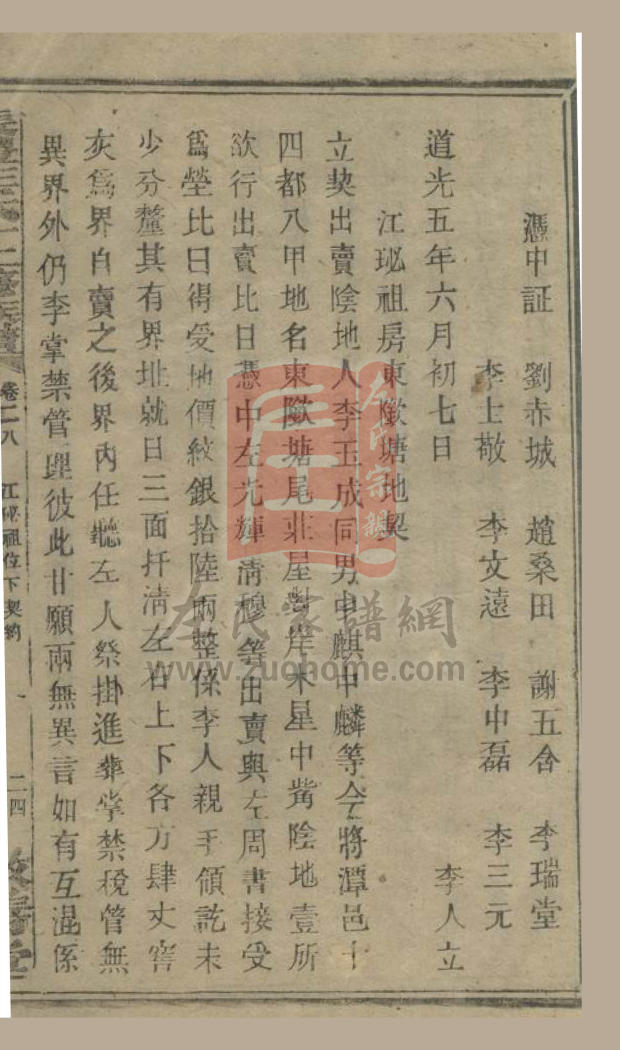 憑中証　劉赤城　趙桑田　謝五合　李瑞堂
李士敬　李文遠　李中磊　李三元
道光五年六月初七日　李人立
江珌祖房東歐塘地契
立契出賣陰地人李玉成同男中麒中麟等今將潭邑十
四都八甲地名東歐塘尾莊屋對岸木星中嘴陰地壹所
欲行出賣比日憑中左光輝清穆等出賣與左周書接受
爲塋比日得受地價紋銀拾陸兩整係李人親手領訖未
少分釐其有界址就日三面扞清左右上下各方肆丈窖
灰爲界自賣之後界內任聽左人祭掛進葬掌禁稅管無
異界外仍李掌禁管理彼此甘願兩無異言如有互混係
卷二八
江珌祖位下契約
二四
左氏宗譜
左氏家譜網
www.zuohome.com